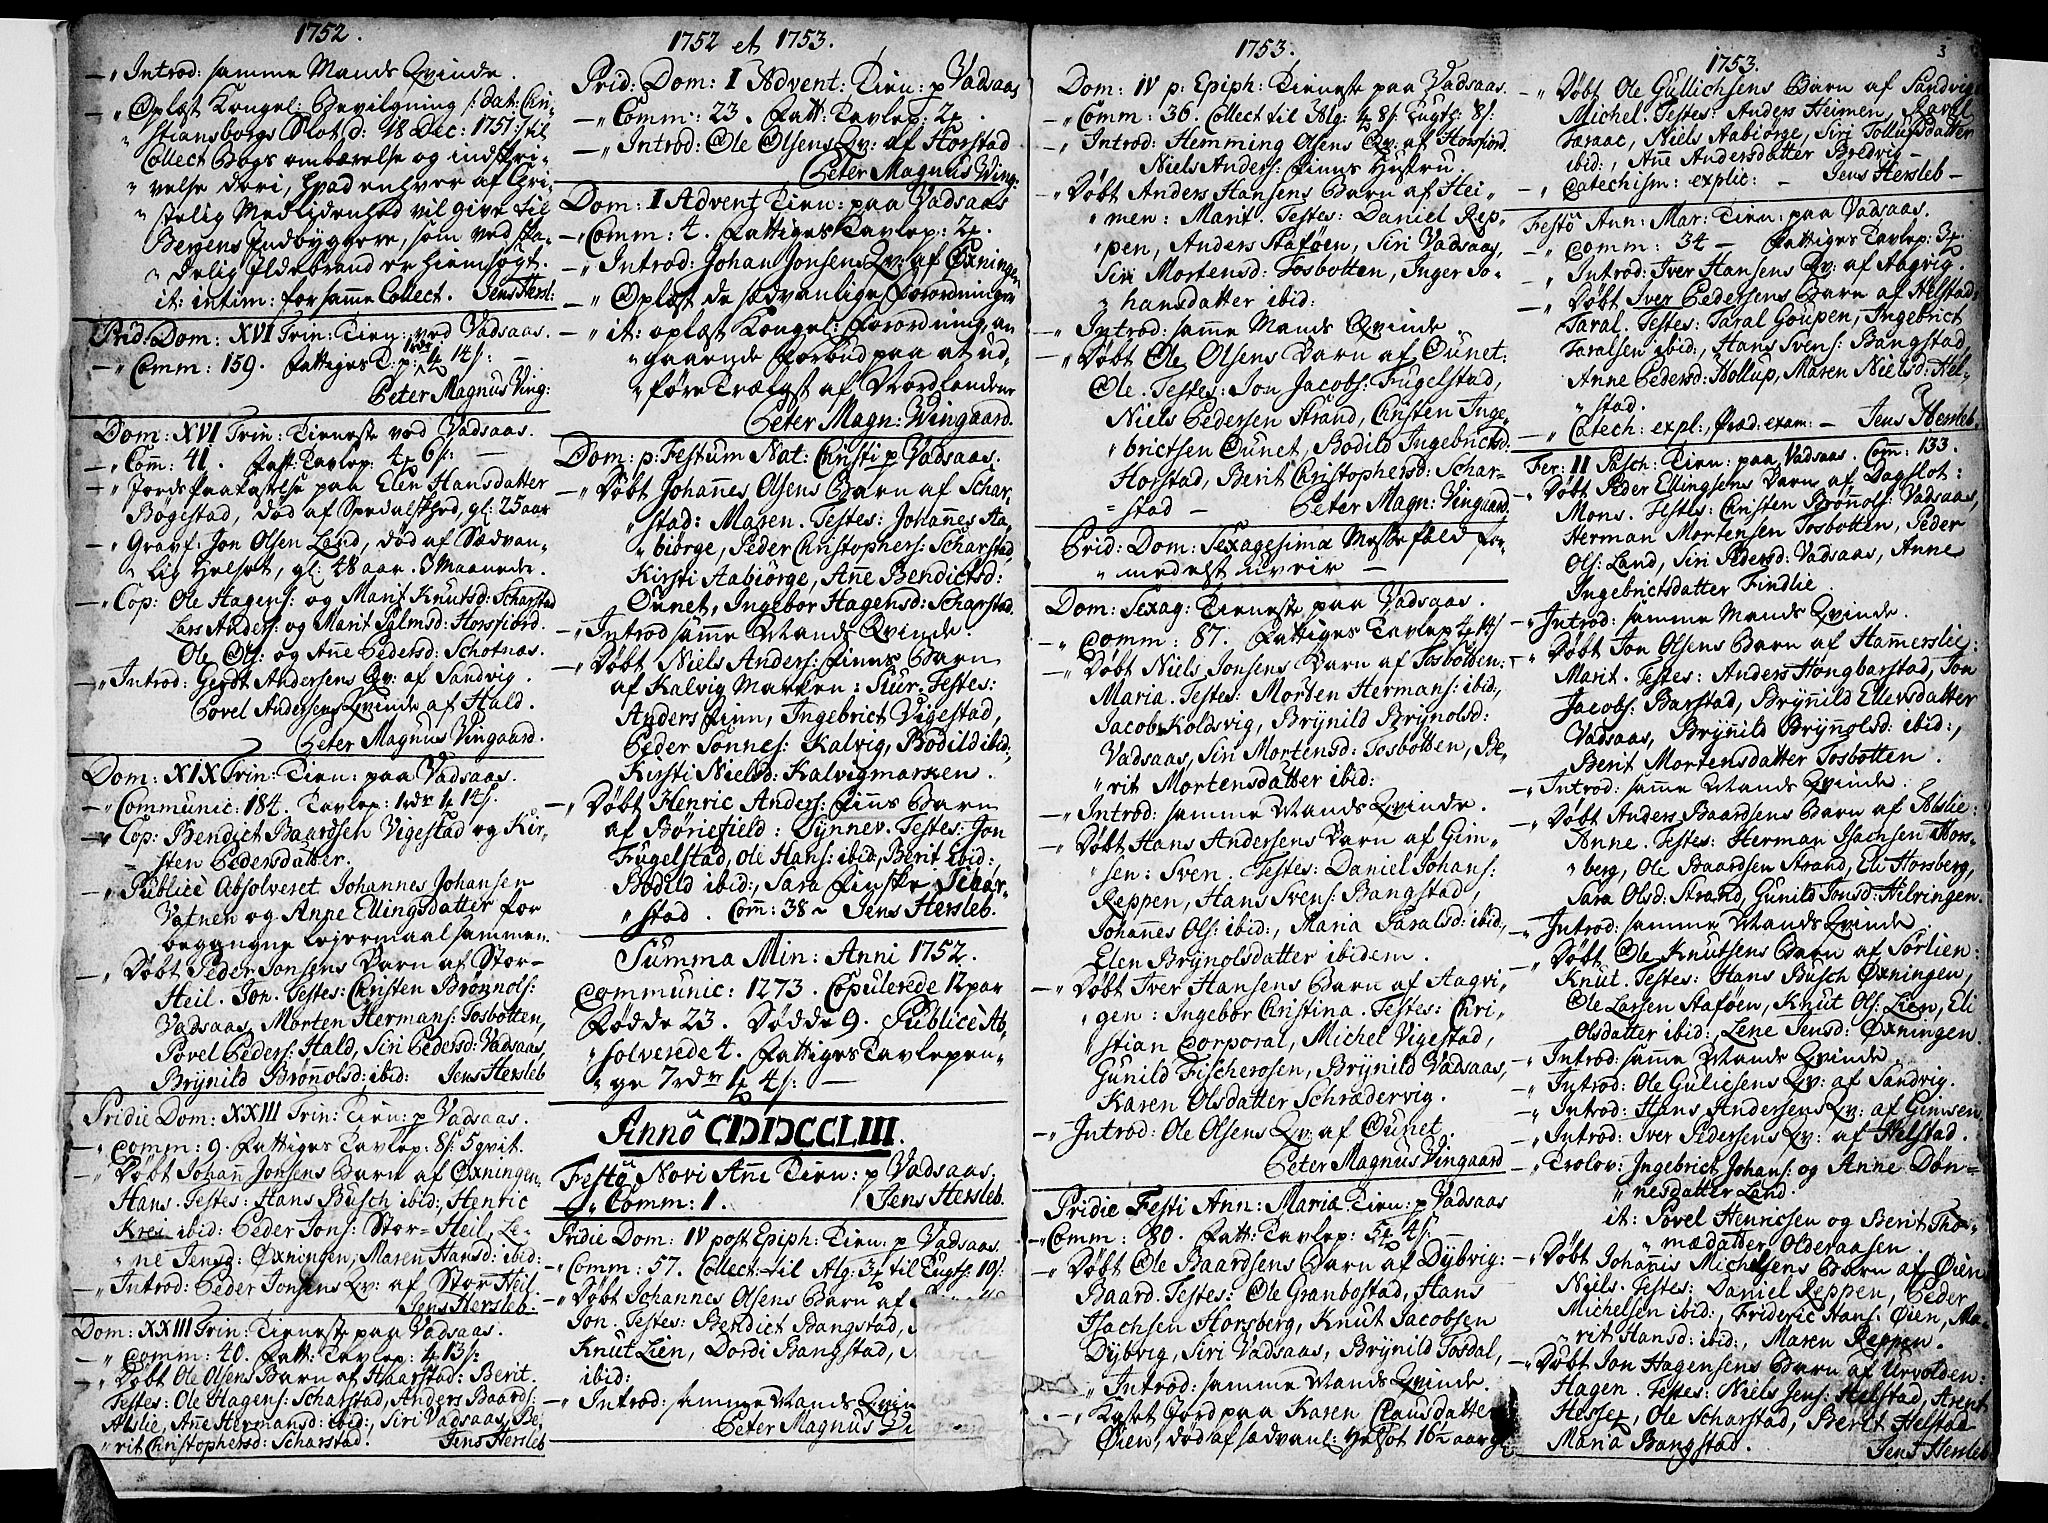 1752.
–„ Introd: samme Mands Qvinde.
–„ Oplæst Kongel: Bevilgning /: dat: Chri-
„ stiansborgs Slot d: 18 Dec: 1751 :/ til
Collect Bogs ombærelse og indskri-
„ velse deri, hvad enhver af Chri-
„ stelig Medlidenhed vil give til
Bergens Indbyggere, som ved ska-
„ delig Ildebrand er hiemsøgt.
it: intim: for samme Collect. Jens Hersl:
Prid: Dom: XVI Trin: Tien: ved Vadsaas.
–„ Comm: 159. Fattiges T: p: 14 s:
Peter Magnus Ving:
Dom: XVI Trin: Tieneste ved Vadsaas.
–„ Com: 41. Fatt: Tavlep: 4 6 s:
–„ Jords paakastelse paa Elen Hansdatter
Bogestad, död af Spedalskhed, gl: 25 aar
–„ Gravf: Jon Olsen Land, död af Sædvan-
„ lig Helsot, gl: 48 aar. 3 Maaneder.
–„ Cop: Ole Hagens: og Marit Knutsd: Scharstad
Lars Anders: og Marit Palmsd: Horsfiord.
Ole Ols: og Anne Pedersd: Schotnæs.
–„ Introd: Gerdt Andersens Qv: af Sandvig.
Povel Andersens Qvinde af Hald.
Peter Magnus Vingaard.
Dom: XIX Trin: Tien: paa Vadsaas.
–„ Communic: 184. Tavlep: 1 rdr 14 s.
–„ Cop: Bendict Baardsen Vigestad og Kir-
„ sten Pedersdatter.
–„ Publicè Absolveret Johannes Johansen
Vatnen og Anne Ellingsdatter for
begangne Lejermaal sammen.
–„ Döbt Peder Jonsens Barn af Stor-
Heil. Jon. Testes: Christen Brönnols:
Vadsaas, Morten Hermans: Tosbotten,
Povel Peders: Hald, Siri Pedersd: Vadsaas,
Brÿnild Bronnolsd: ibid: Jens Hersleb
Pridie Dom: XXIII Trin: Tien: p Vadsaas.
–„ Comm: 9. Fattiges Tavlep: 8 s: 5 qvit.
–„ Döbt Johan Jonsens Barn af Öxningen.
Hans. Testes: Hans Busch ibid:, Henric
Krei ibid: Peder Jons: Stor-Heil. Le-
„ ne Jensd: Öxningen, Maren Hansd: ibid:
–„ Introd: Peder Jonsens Qv: af Stor Heil.
Jens Hersleb.
Dom: XXIII Trin: Tieneste paa Vadsaas.
–„ Comm: 40. Fatt: Tavlep: 4 13 s:
–„ Döbt Ole Olsens Barn af Haarstad: Berit.
Testes: Ole Hagens: Scharstad, Anders Baards:
Alslie, Anne Hermansd: ibid:, Siri Vadsaas, Be-
„ rit Christophersd: Scharstad. Jens Hersleb
1752 et 1753.
Prid: Dom: I Advent: Tien: p Vadsaas
–„ Comm: 23. Fatt: Tavlep: 2
–„ Introd: Ole Olsens Qv: af Horstad
Peter Magnus Wing:
Dom: I Advent Tien: paa Vadsaas
–„ Comm: 4. Fattiges Tavlep: 2
–„ Introd: Johan Jonsens Qv: af Öxningen
–„ Oplæst de sædvanlige Forordninger
–„ it: oplæst Kongel: Forordning, an-
„ gaaende Forbud paa at ud-
„ före Trælast af Nordlandene
Peter Magn: Wingaard.
Dom: p: Festum Nat: Christi p Vadsaas.
–„ Döbt Johannes Olsens Barn af Schar-
„ stad: Maren. Testes: Johannes Aa-
„ biörge, Peder Christophers: Scharstad,
Kirsti Aabiörge, Anne Bendictsd:
Ounet, Ingebor Hagensd: Scharstad.
–„ Introd samme Mands Qvinde.
–„ Döbt Niels Anders: Finns Barn
af Kalvig Marken: Siur. Testes:
Anders Finn, Ingebrict Vigestad,
Peder Sonnes: Kalvig, Bodild ibid:,
Kirsti Nielsd: Kalvigmarken.
–„ Döbt Henric Anders: Finns Barn
af Böriefield: Synnev. Testes: Jon
Fugelstad, Ole Hans: ibid, Berit ibid:,
Bodild ibid:, Sara Finske Schar-
„ stad. Com: 38 ~ Jens Hersleb.
Summa Min: Anni 1752.
Communic: 1273. Copulerede 12 par
Födde 23. Dödde 9. Publicè Ab-
„ solverede 4. Fattiges Tavlepen-
„ ge 7 rdr 1 4 s: –
Annô CIƆIƆCCLIII.
Festô Novi Ani Tien: p Vadsaas,
–„ Comm: 1. Jens Hersleb.
Pridie Dom: IV post Epiph: Tien: p Vadsaas
–„ Comm: 57. Collect: til Alg: 3 til Tugts: 10 s:
–„ Döbt Johannes Olsens Barn af
Jon. Testes: Bendict Bangstad,
Knut Lien, Dordi Bangstad, Maria
ibid:
–„ Introd: samme Mands Qvin
Peter Magnus Vingaard
1753.
Dom: IV p: Epiph: Tieneste paa Vadsaas.
–„ Comm: 36. Collect til Alg: 8 s: Tugts: 8 s:
–„ Introd: Hemming Olsens Qv: af Horsfiord.
Niels Anders: Finns Hustru
–„ Döbt Anders Hansens Barn af Hei-
„ men: Marit. Testes: Daniel Rep-
„ pen, Anders Staföen, Siri Vadsaas,
Siri Mortensd: Tosbotten, Inger Jo-
„ hansdatter ibid:
–„ Introd: samme Mands Qvinde
–„ Döbt Ole Olsens Barn af Ounet:
Ole. Testes: Jon Jacobs: Fugelstad,
Niels Pedersen Strand, Christen Inge-
„ brictsen Ounet, Bodild Ingebrictsd:
Horstad, Berit Christophersd: Schar-
„ stad – Peter Magn: Vingaard.
Prid: Dom: Sexagesima Messefald for-
„ medelst uveir –
Dom: Sexag: Tieneste paa Vadsaas.
–„ Comm: 87. Fattiges Tavlep 14 s
–„ Döbt Niels Jonsens Barn af Tosbotten:
Maria. Testes: Morten Hermans: ibid:,
Jacob Koldsvig, Brÿnild Brÿnolsd:
Vadsaas, Siri Mortensd: Tosbotten, Be-
„ rit Mortensdatter ibid:
–„ Introd: samme Mands Qvinde.
–„ Döbt Hans Andersens Barn af Gim-
„ sen: Sven. Testes: Daniel Johans:
Reppen, Hans Svens: Bangstad,
Johannes Ols: ibid:, Maria Taralsd: ibid:,
Elen Brÿnolsdatter ibidem.
–„ Döbt Iver Hansens Barn af Aagvi-
„ gen: Ingebor Christina. Testes: Chri-
„ stian Corporal, Michel Vigestad,
Gunild Fischerosen, Brÿnild Vadsaas,
Karen Olsdatter Schrædervig.
–„ Introd: Ole Olsens Qv: af Ounet.
Peter Magnus Vingaard
Pridie Festi Ann: Mariæ Tien: p Vadsaas
–„ Comm: 80. Fatt: Tavlep: 5 4 s:
–„ Döbt Ole Baardsens Barn af Dÿbvig:
Baard. Testes: Ole Granbostad, Hans
Isachsen Horsberg, Knut Jacobsen
Dÿbvig, Siri Vadsaas, Brÿnild Tosdal,
–„ Introd: samme Mands Qvinde.
–„ Kastet Jord paa Karen Clausdatter
Öien, död af sædvanl: Helsot 16½ aar gl:
3
1753.
–„ Döbt Ole Gullichsens Barn af Sandvig
Michel. Testes: Anders Heimen, Paral
Taraac, Niels Aabiörge, Siri Tollufsdatter
ibid:, Anne Andersdatter Bredvig –
–„ Catechism: explic: – Jens Hersleb –
Festô Ann: Mar: Tien: paa Vadsaas.
–„ Comm: 34 – Fattiges Tavlep: 3
–„ Introd: Iver Hansens Qv: af Aagvig.
–„ Döbt Iver Pedersens Barn af Helstad:
Taral. Testes: Taral Goupen, Ingebrict
Taralsen ibid:, Hans Svens: Bangstad,
Anne Pedersd: Hollup, Maren Nielsd: Hel-
„ stad.
–„ Catech: expl:, Præd: exam: – Jens Hersleb
Fer: II Pasch: Tien: paa Vadsaas. Com: 133.
–„ Döbt Peder Ellingsens Barn af Dagslot:
Mons. Testes: Christen Brönnols: Vadsaas,
Herman Mortensen Tosbotten, Peder
Ols: Land, Siri Pedersd: Vadsaas, Anne
Ingebrictsdatter Findlie.
–„ Introd: samme Mands Qvinde.
–„ Döbt Jon Olsens Barn af Hammerslie:
Marit. Testes: Anders Hongbarstad, Jon
Jacobs: Barstad, Brÿnild Ellersdatter
Vadsaas, Brÿnild Brÿnnolsd: ibid:,
Berit Mortensdatter Tosbotten.
–„ Introd: samme Mands Qvinde.
–„ Döbt Anders Baardsens Barn af Alslie:
Anne. Testes: Herman Isachsen Hors-
„ berg, Ole Baardsen Strand, Eli Horsberg,
Sara Olsd: Strand, Gunild Jonsd: Helringen.
–„ Introd: samme Mands Qvinde
–„ Döbt Ole Knutsens Barn af Sörlien:
Knut. Testes: Hans Busch Öxningen,
Ole Larsen Staföen, Knut Ols: Lien, Eli
Olsdatter ibid:, Lene Jensd: Öxningen.
–„ Introd: samme Mands Qvinde.
–„ Introd: Ole Guliesens Qv: af Sandvig.
–„ Introd: Hans Andersens Qv: af Gimsen
–„ Introd: Iver Pedersens Qv: af Helstad.
–„ Trolov: Ingebrict Johans: og Anne Dön-
„ nesdatter Land.
it: Povel Henricsen og Berit Tho-
„ mædatter Olderaasen.
–„ Döbt Johannis Michelsens Barn af Öien
Niels. Testes: Daniel Reppen, Peder
Michelsen ibid:, Frideric Hans: Öien, Ma-
„ rit Hansd: ibid:, Maren Reppen.
–„ Döbt Jon Hagensens Barn af Urvolden:
Hagen. Testes: Niels Jens: Helstad, Arent
Hesses, Ole Scharstad, Berit Helstad
Maria Bangstad. Jens Hersleb